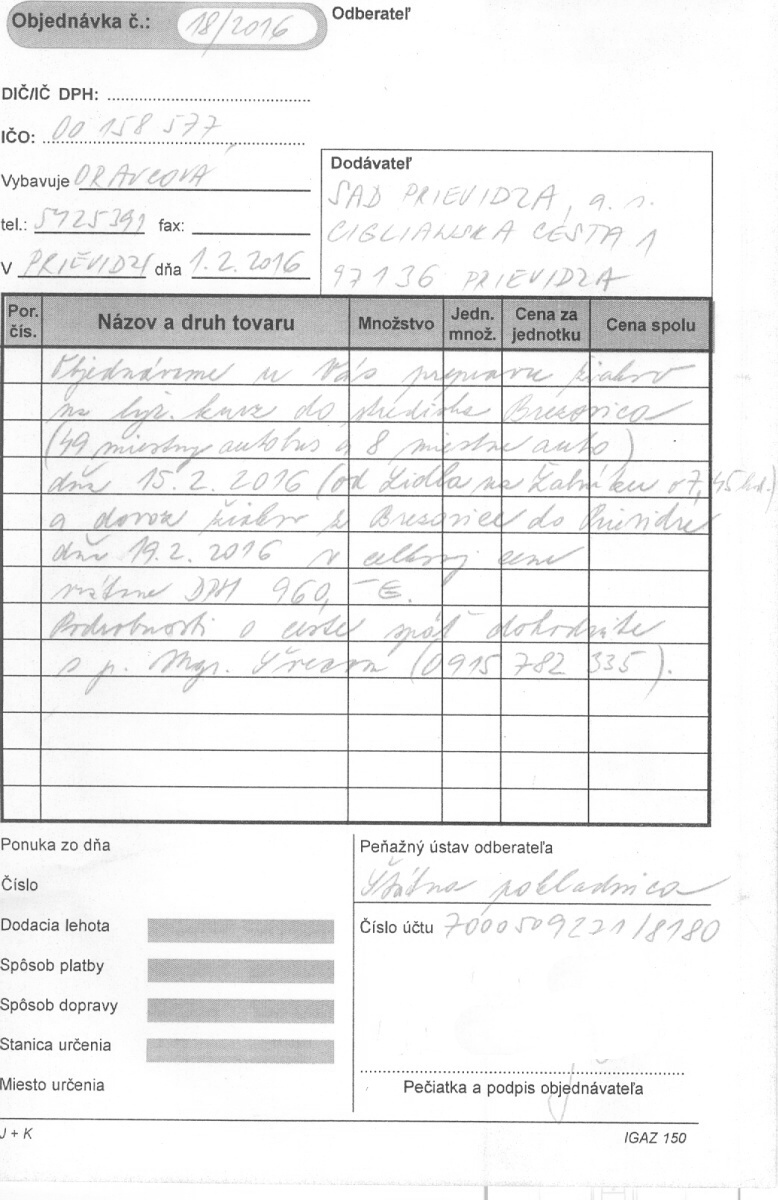 Objednávka č.: 18/2016
Odberateľ
DIČ/IČ DPH:
IČO: 00 158 577
Vybavuje ORAVCOVÁ
tel.: 5425391 fax:
V PRIEVIDZI dňa 1.2.2016
Dodávateľ
SAD PRIEVIDZA, a.s.
CIGLIANSKA CESTA 1
97136 PRIEVIDZA
Por. čís. Názov a druh tovaru Množstvo Jedn. množ. Cena za jednotku Cena spolu
Objednávame u Vás prepravu žiakov
na lyž. kurz do strediska Brezovica
(49 miestny autobus a 8 miestne auto)
dňa 15.2.2016 (od Lidla na Žabníku o 7,45 hod.)
a dovoz žiakov z Brezovice do Prievidze
dňa 19.2.2016 v celkovej cene
vrátane DPH 960,- €.
Podrobnosti o ceste späť dohodnite
s p. Mgr. (0915 782 335).
Ponuka zo dňa
Číslo
Dodacia lehota
Spôsob platby
Spôsob dopravy
Stanica určenia
Miesto určenia
Peňažný ústav odberateľa
Štátna pokladnica
Číslo účtu 7000509221/8180
Pečiatka a podpis objednávateľa
J + K
IGAZ 150